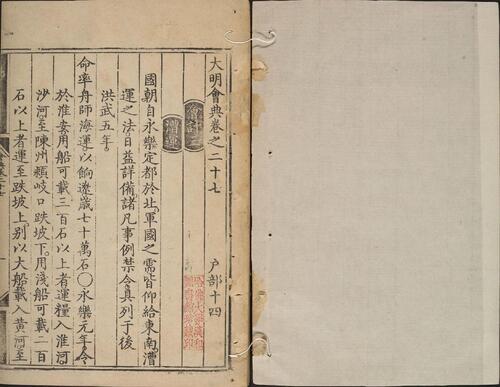 大明會典卷之二十七 户部十四
會計三
漕運
國朝自永樂定都於北軍國之需皆仰給東南漕
運之法日益詳備諸凡事例禁令具列于後
洪武五年
命率舟師海運以餉遼歲七十萬石〇永樂元年令
於淮安用船可載三百石以上者運糧入淮河
沙河至陳州潁岐口跌坡下用淺船可載二百
石以上者運至跌坡上别以大船載入黃河至